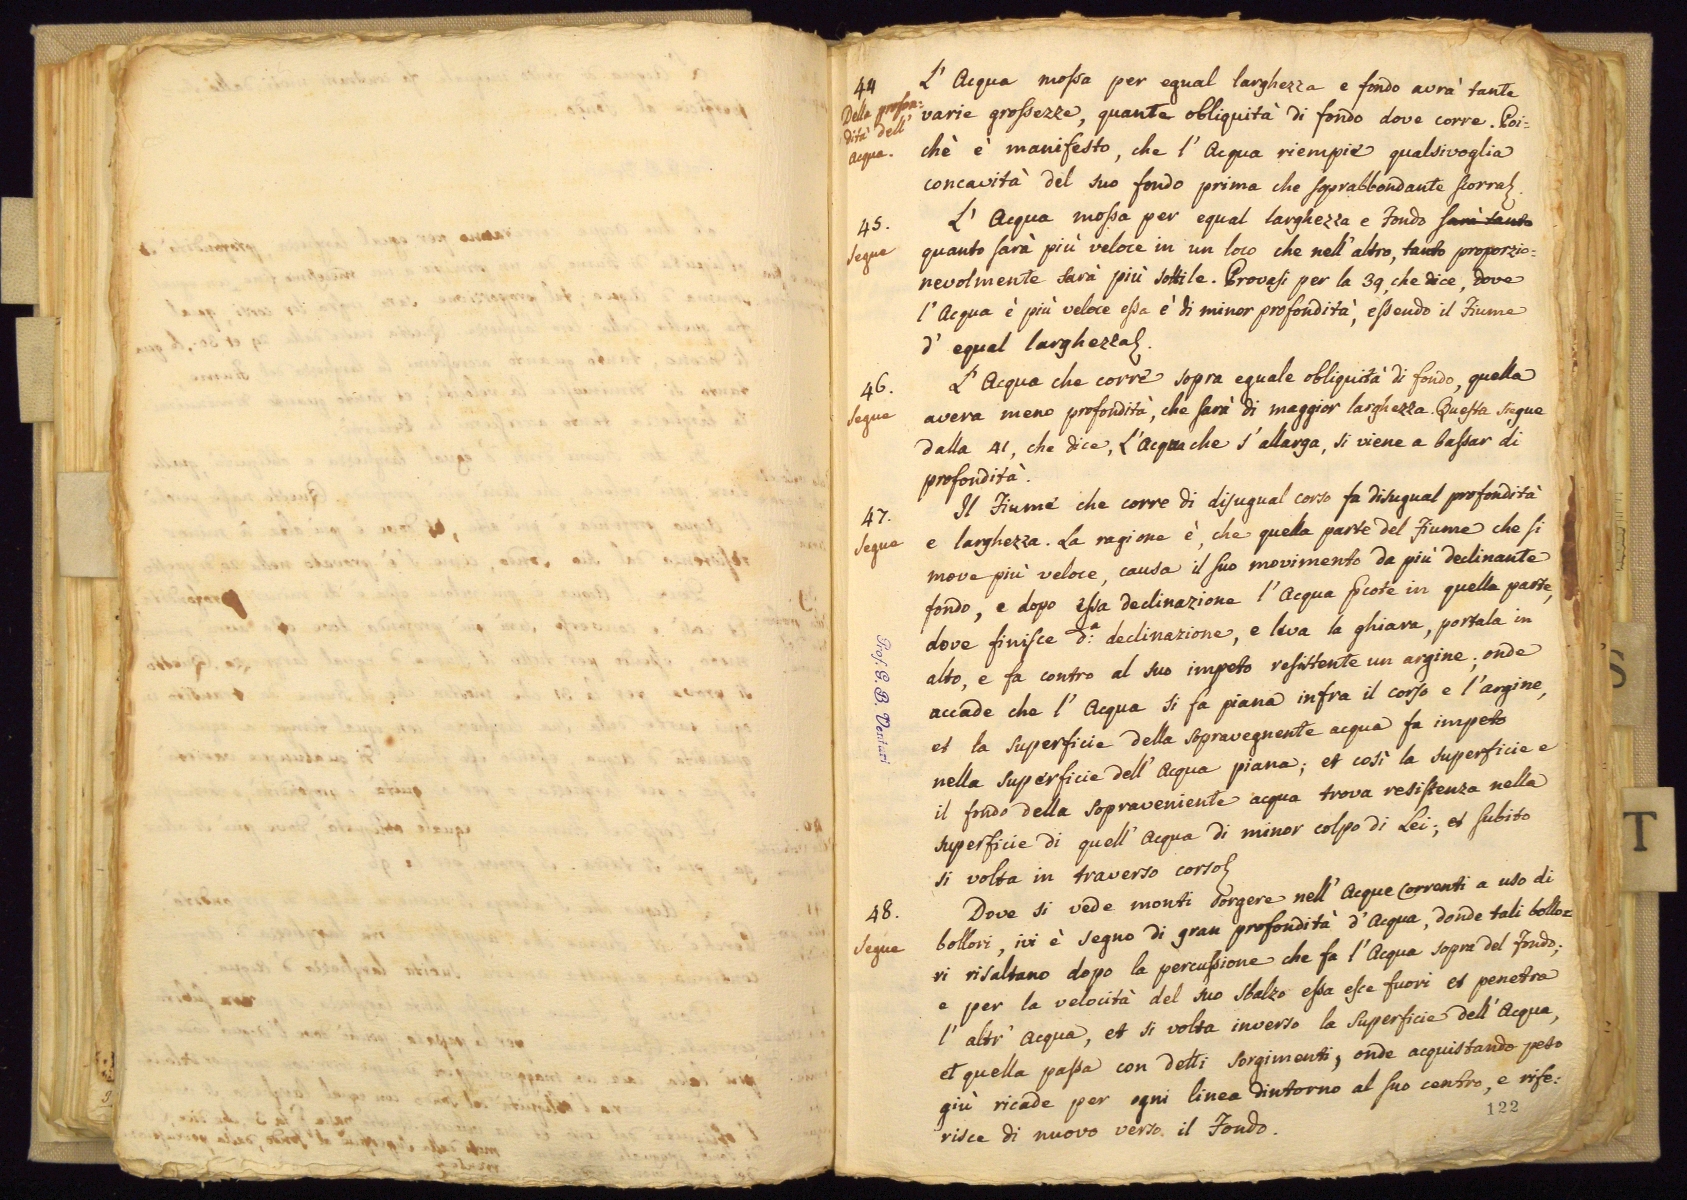 44
Della profon:
dità dell'
acqua.
L' Acqua mossa per egual larghezza e fondo avrà tante
varie grossezze, quante obliquità di fondo dove corre. Poi=
chè è manifesto, che l' Acqua riempie qualsivoglia
concavità del suo fondo prima che soprabbondante scorra.
45.
Segue
L' Acqua mossa per equal larghezza e Fondo sarà tanto
quanto sarà più veloce in un loco che nell' altro, tanto proporzio=
nevolmente sarà più sottile. Provasi per la 39, che dice, dove
l' Acqua è più veloce essa è di minor profondità, essendo il Fiume
d' equal larghezza.
46.
Segue
L' Acqua che corre sopra eguale obliquità di fondo, quella
avera meno profondità, che sarà di maggior larghezza. Questa siegue
dalla 41, che dice, L'Acqua che s' allarga, si viene a bassar di
profondità.
47.
Segue
Il Fiume che corre di disugual corso fa disugual profondità
e larghezza. La ragione è, che quella parte del Fiume che si
move più veloce, causa il suo movimento da più declinante
fondo, e dopo essa declinazione l' Acqua scote in quella parte,
dove finisce d.ª declinazione, e leva la ghiara, portala in
alto, e fa contro al suo impeto resistente un argine; onde
accade che l' Acqua si fa piana infra il corso e l' argine,
et la superficie della sopravegnente acqua fa impeto
nella superficie dell' Acqua piana; et così la superficie e
il fondo della sopraveniente acqua trova resistenza nella
superficie di quell' Acqua di minor colpo di Lei; et subito
si volta in traverso corso
48.
Segue
Dove si vede monti sorgere nell' Acque correnti a uso di
bollori, ivi è segno di gran profondità d' Acqua, donde tali bollo=
ri risaltano dopo la percussione che fa l' Acqua sopra del Fondo;
e per la velocità del suo sbalzo essa esce fuori et penetra
l' altr' Acqua, et si volta inverso la superficie dell' Acqua,
et quella passa con detti sorgimenti, onde acquistando peso
giù ricade per ogni linea dintorno al suo centro, e rife:
risce di nuovo verso il Fondo.
122
Prof. G. B. Venturi
T